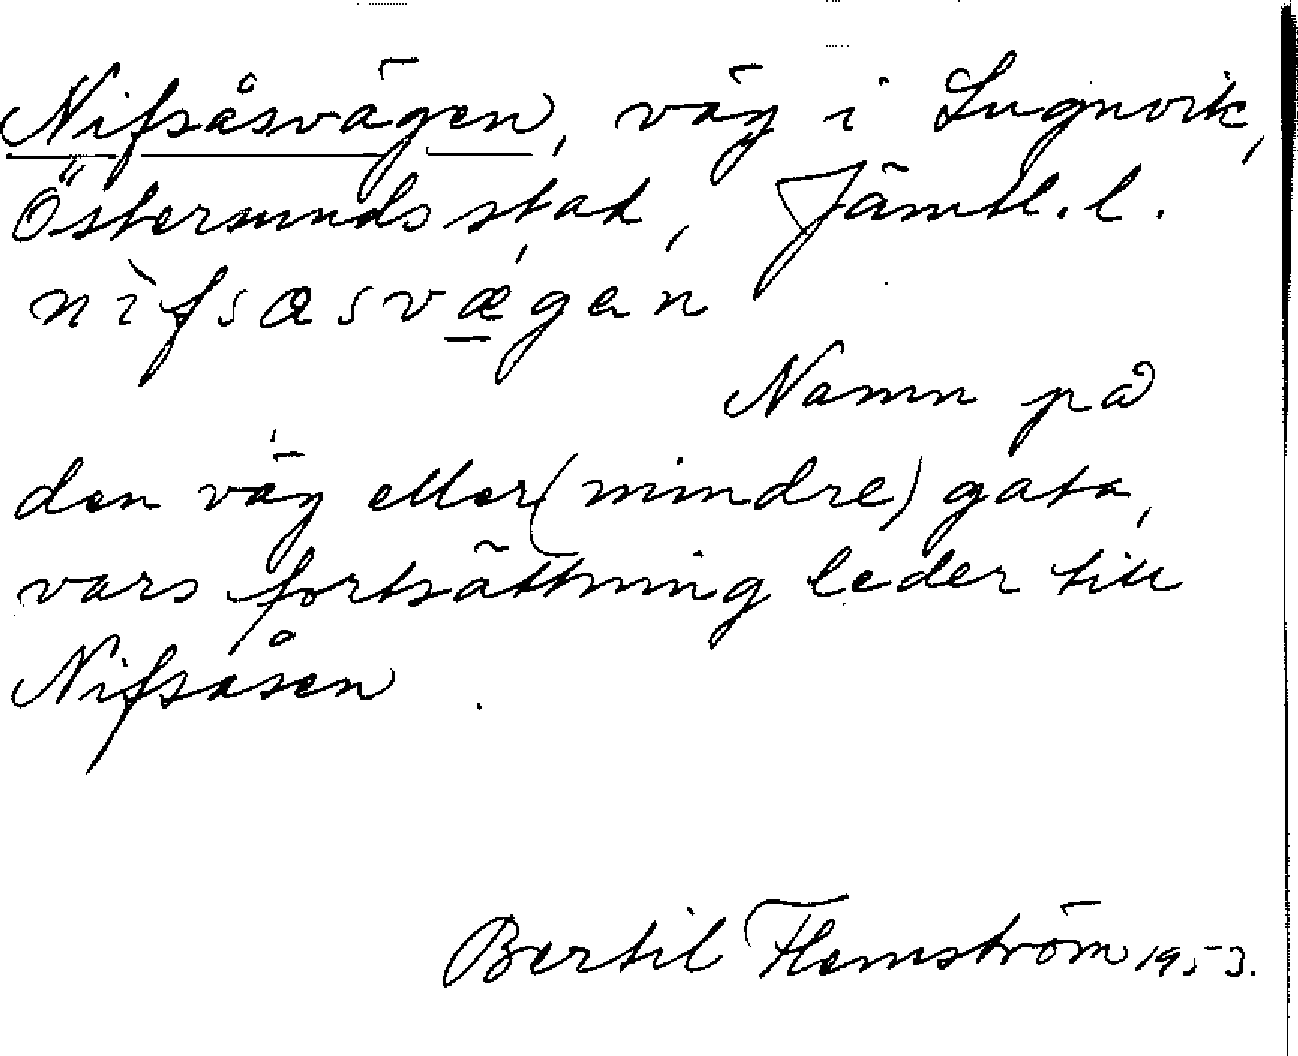 Nifsåsvägen, väg i Lugnvik,
Östersunds stad, Jämtl. l.
nìfsasvǽgen
Namn på
den väg eller (mindre) gata,
vars fortsättning leder till
Nifsåsen.
Bertil Flemström 1953.